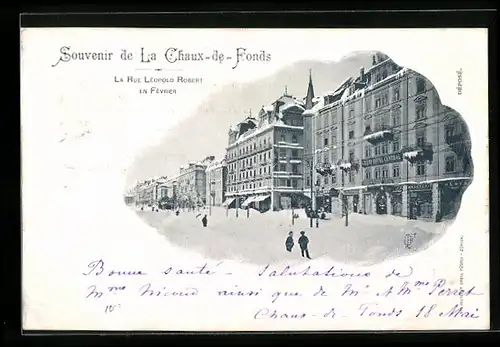 Souvenir de La Chaux-de-Fonds
La Rue Léopold Robert
en Février
DÉPOSÉ.
GRAND HÔTEL CENTRAL
Bonne santé - Salutations de
Mme Nicoud ainsi que de Mr & Mme Perret
Chaux-de-Fonds 18 Mai